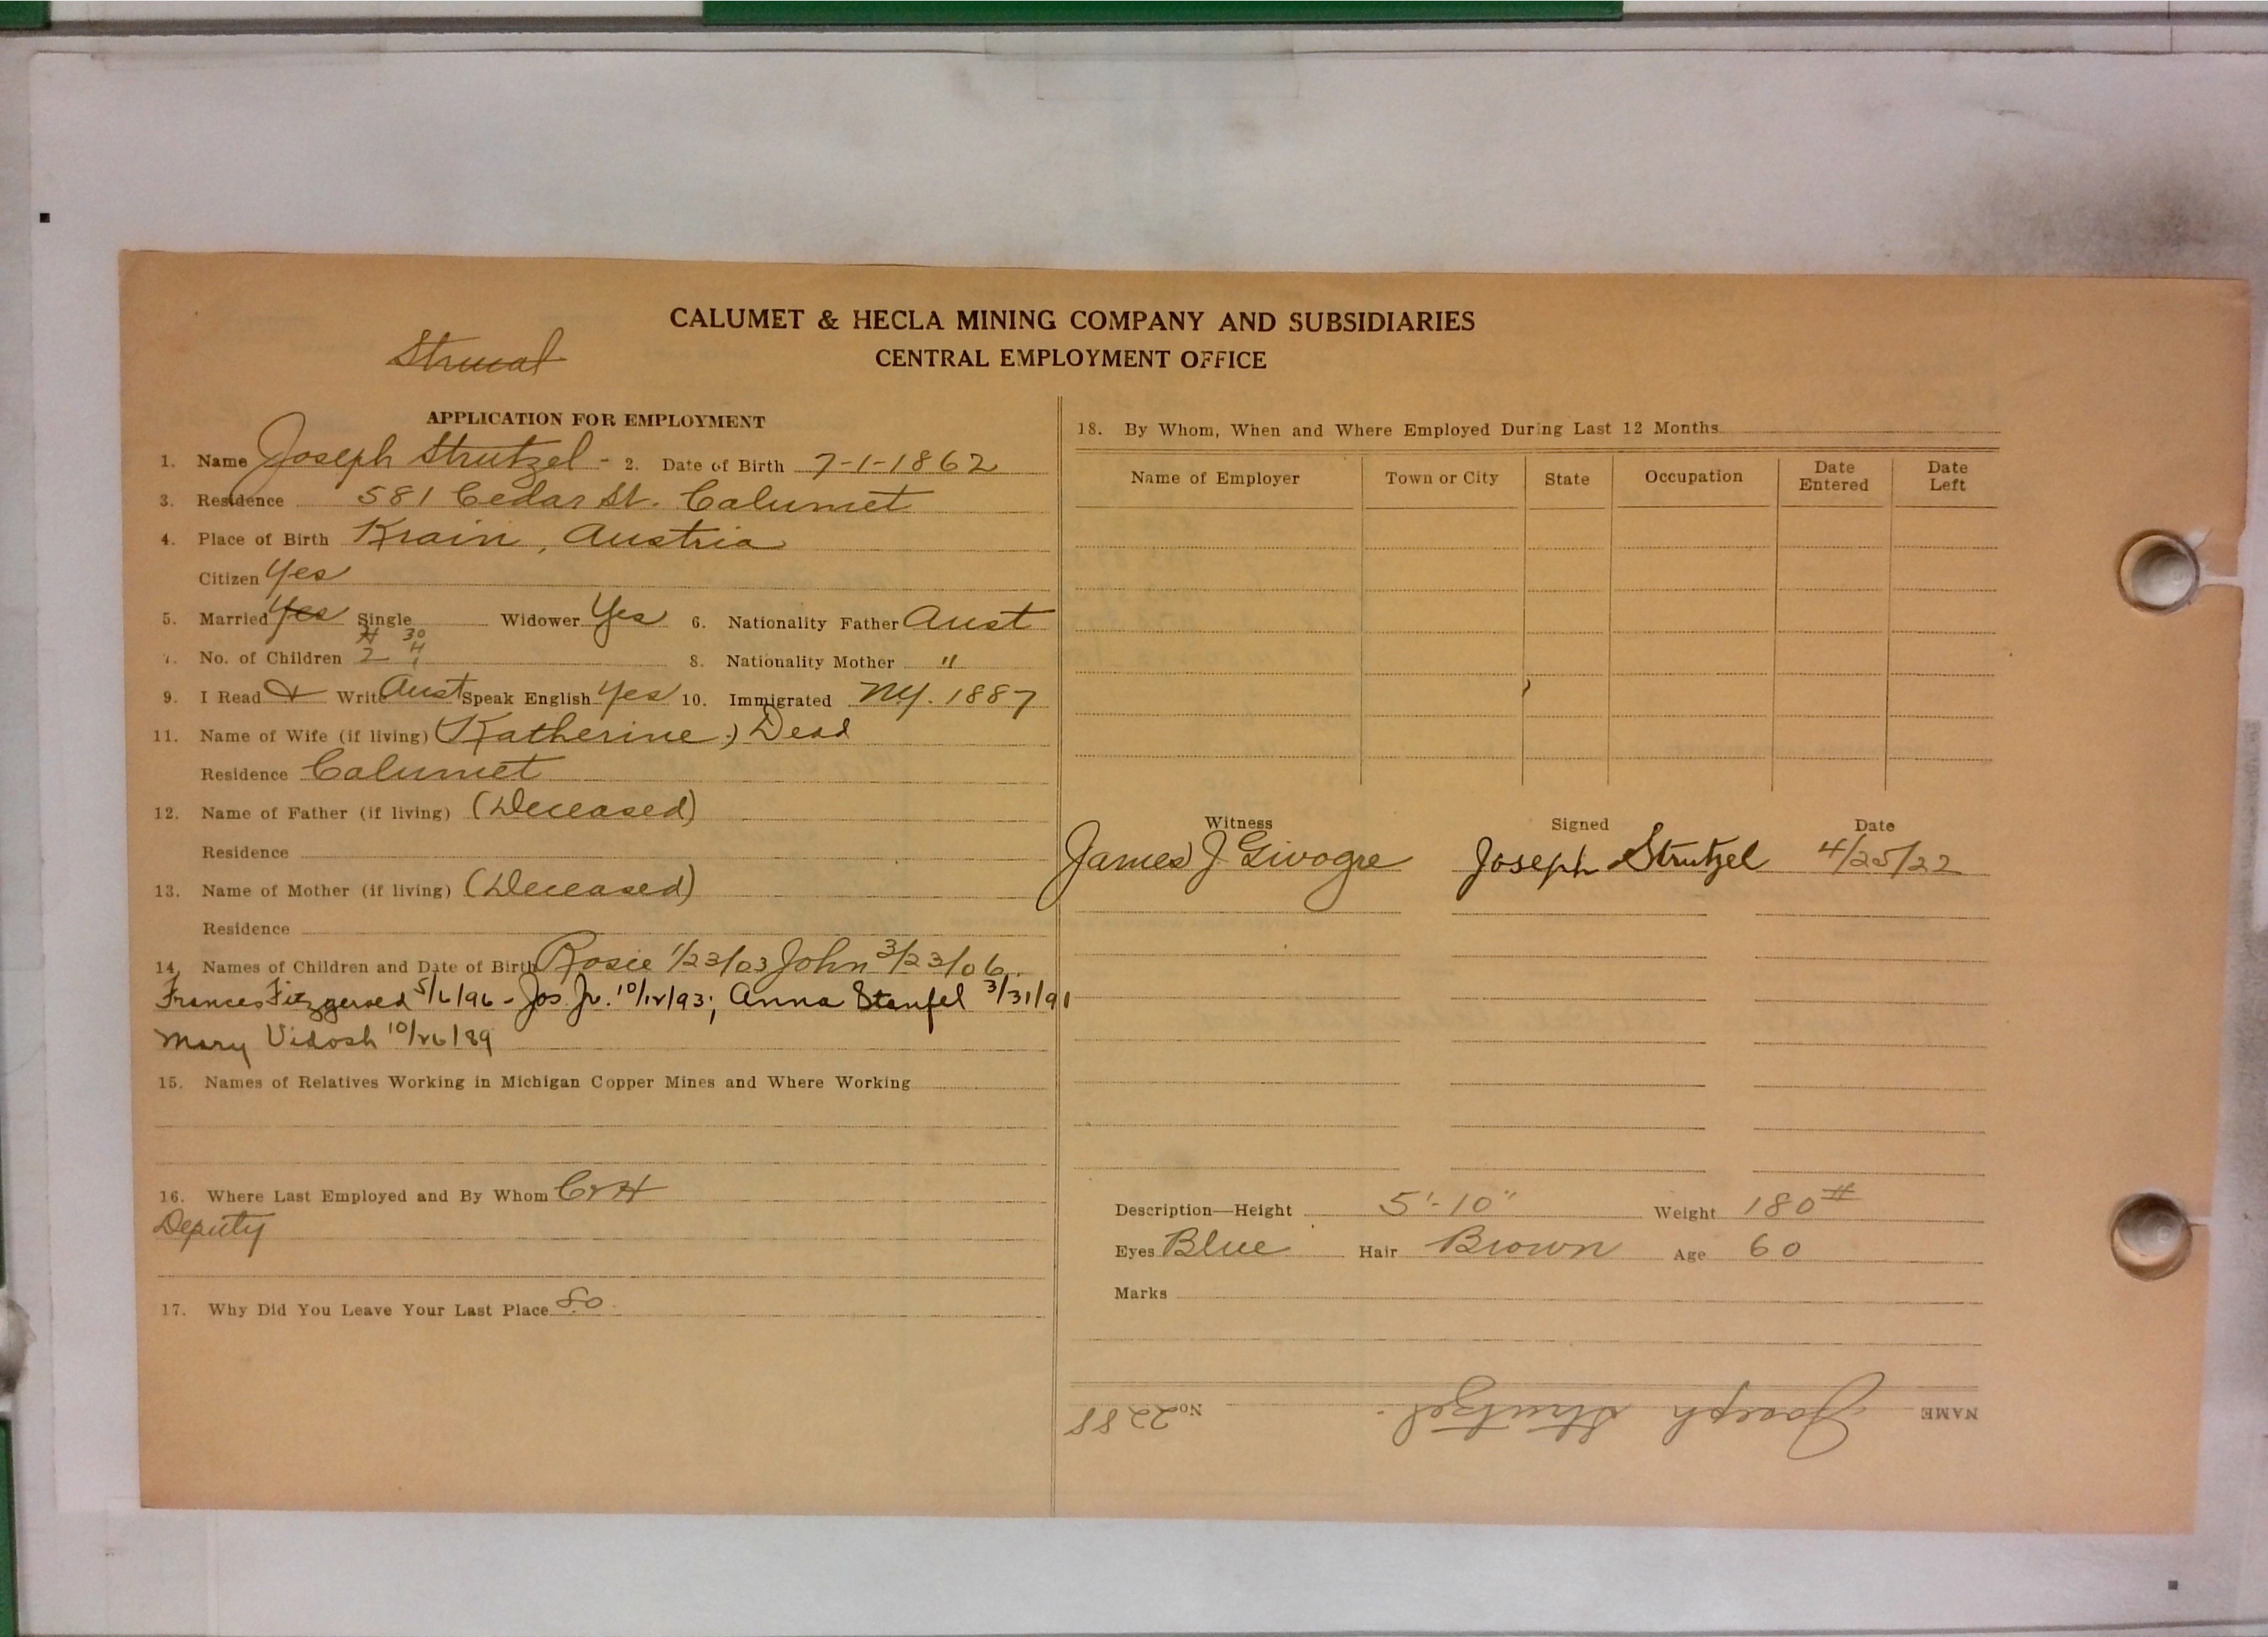 CALUMET & HECLA MINING COMPANY AND SUBSIDIARIES
CENTRAL EMPLOYMENT OFFICE
APPLICATION FOR EMPLOYMENT
1. Name Joseph Strutzel - 2. Date of Birth 7-1-1862
3. Residence 581 Cedar St. Calumet
4. Place of Birth Krain, Austria
Citizen Yes
5. Married Yes Single Widower Yes 6. Nationality Father Aust
7. No. of Children 2 8. Nationality Mother "
9. I Read & Write Aust Speak English Yes 10. Immigrated N.Y. 1887
11. Name of Wife (if living) (Katherine) Dead
Residence Calumet
12. Name of Father (if living) (Deceased)
Residence
13. Name of Mother (if living) (Deceased)
Residence
14. Names of Children and Date of Birth Rosie 1/23/03 John 3/23/06
Frances Fitzgerald 5/6/96 - Jos. Jr. 10/12/93; Anna Stanfel 3/31/91
Mary Vidosh 10/26/89
15. Names of Relatives Working in Michigan Copper Mines and Where Working
16. Where Last Employed and By Whom C&H
Deputy
17. Why Did You Leave Your Last Place
18. By Whom, When and Where Employed During Last 12 Months
Name of Employer Town or City State Occupation Date Entered Date Left
Witness Signed Date
James J Givogre Joseph Strutzel 4/25/22
Description—Height 5'-10" Weight 180#
Eyes Blue Hair Brown Age 60
Marks
NAME Joseph Strutzel. No. 2288